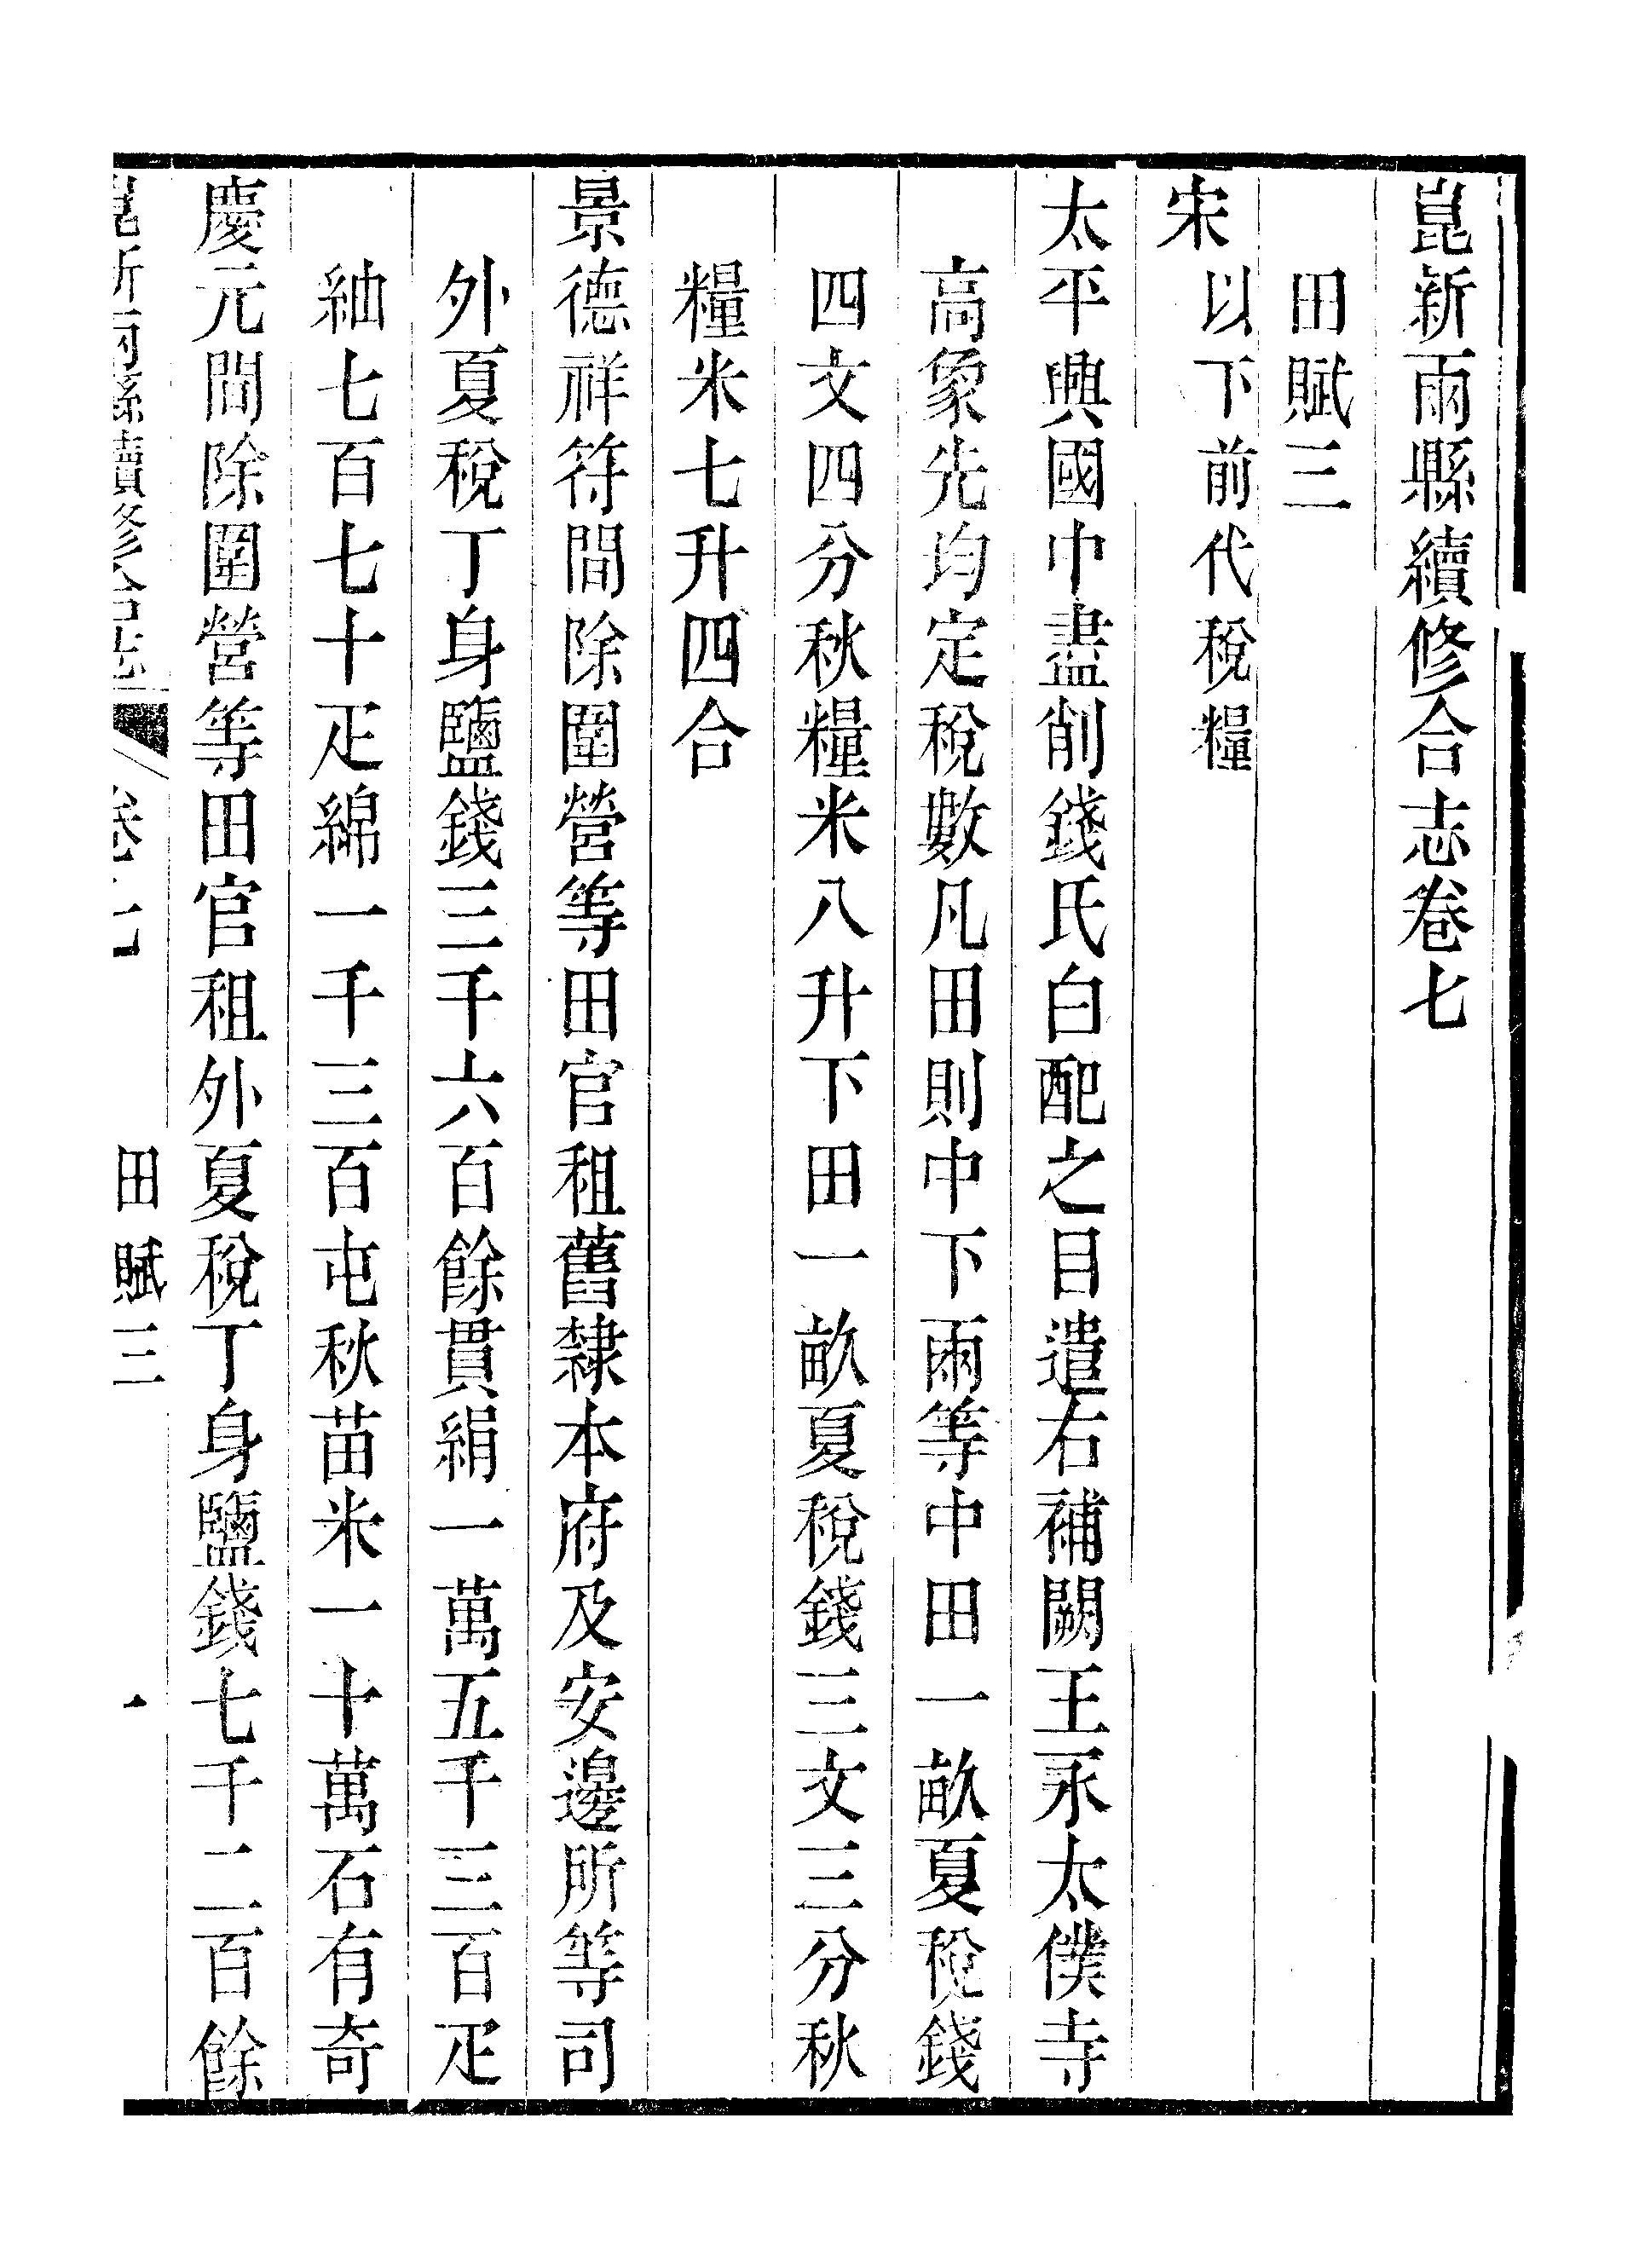 崑新兩縣續修合志卷七
田賦三
宋以下前代稅糧
太平興國中盡削錢氏白配之目遣右補闕王永太僕寺
高象先均定稅數凡田則中下兩等中田一畝夏稅錢
四文四分秋糧米八升下田一畝夏稅錢三文三分秋
糧米七升四合
景德祥符間除圍營等田官租舊隸本府及安邊所等司
外夏稅丁身鹽錢三千六百餘貫絹一萬五千三百疋
紬七百七十疋綿一千三百屯秋苗米一十萬石有奇
慶元間除圍營等田官租外夏稅丁身鹽錢七千二百餘
崑新兩縣續修合志 卷七 田賦三 一